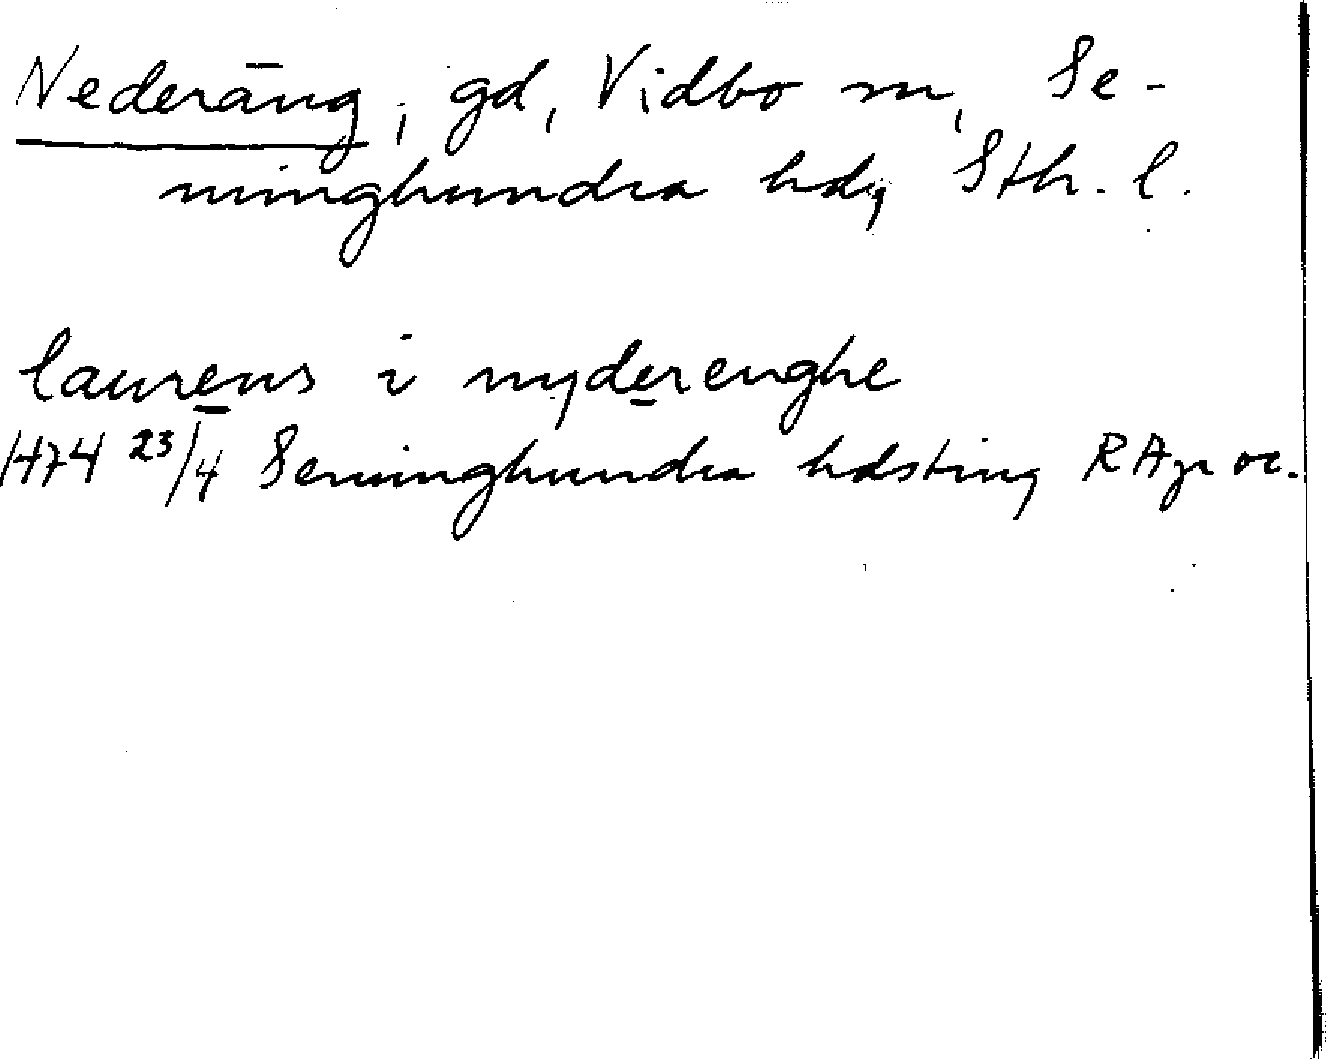 Nederäng, gd, Vidbo sn, Se-
minghundra hd, Sth. l.
laurens i nyderenghe
1474 23/4 Seminghundra hdsting RAp or.